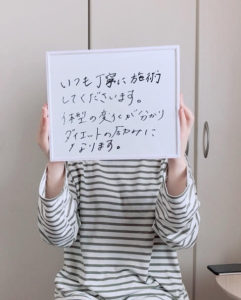 いつも丁寧に施術
してくださいます。
体型の変化が分かり
ダイエットの励みに
なります。